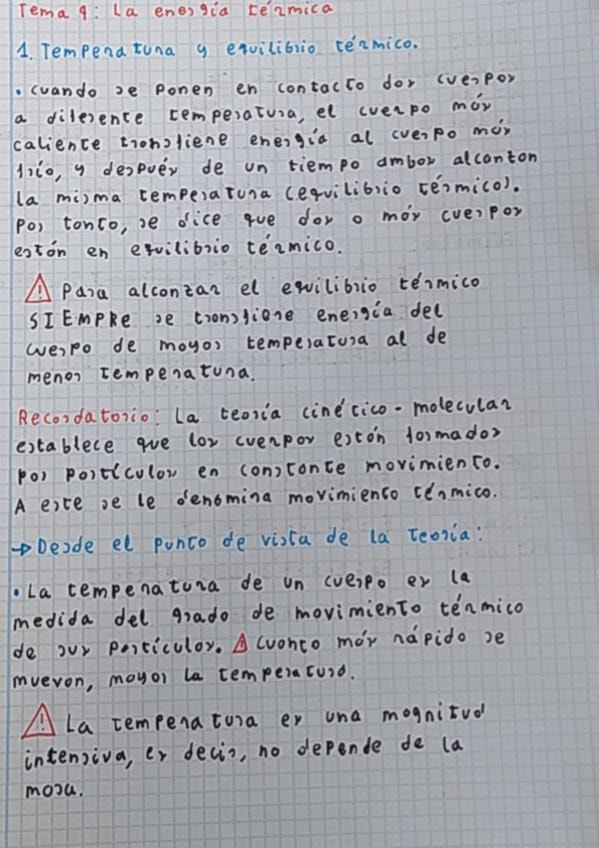 Tema 9: La energía térmica
1. Temperatura y equilibrio térmico.
• Cuando se ponen en contacto dos cuerpos
a diferente temperatura, el cuerpo más
caliente transfiere energía al cuerpo más
frío, y después de un tiempo ambos alcanzan
la misma temperatura (equilibrio térmico).
Por tanto, se dice que dos o más cuerpos
están en equilibrio térmico.
⚠ Para alcanzar el equilibrio térmico
SIEMPRE se transfiere energía del
cuerpo de mayor temperatura al de
menor temperatura.
Recordatorio: La teoría cinético-molecular
establece que los cuerpos están formados
por partículas en constante movimiento.
A este se le denomina movimiento térmico.
→ Desde el punto de vista de la teoría:
• La temperatura de un cuerpo es la
medida del grado de movimiento térmico
de sus partículas. ⚠ Cuanto más rápido se
muevan, mayor la temperatura.
⚠ La temperatura es una magnitud
intensiva, es decir, no depende de la
masa.